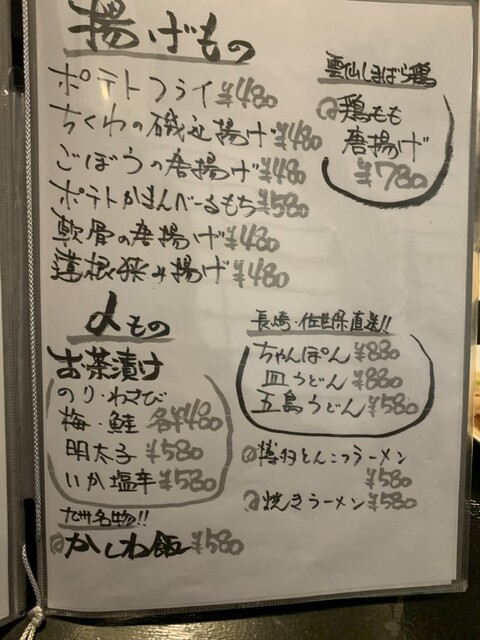 揚げもの
ポテトフライ ¥480
ちくわの磯辺揚げ ¥480
ごぼうの唐揚げ ¥480
ポテトかまんべーるもち ¥580
軟骨の唐揚げ ¥480
蓮根挟み揚げ ¥480
雲仙しまばら鶏
鶏もも
唐揚げ
¥780
〆もの
お茶漬け
のり・わさび
梅・鮭 各¥480
明太子 ¥580
いか塩辛 ¥580
九州名物!!
かしわ飯 ¥580
長崎・佐世保直送!!
ちゃんぽん ¥880
皿うどん ¥880
五島うどん ¥580
博多とんこつラーメン
¥580
焼きラーメン ¥580